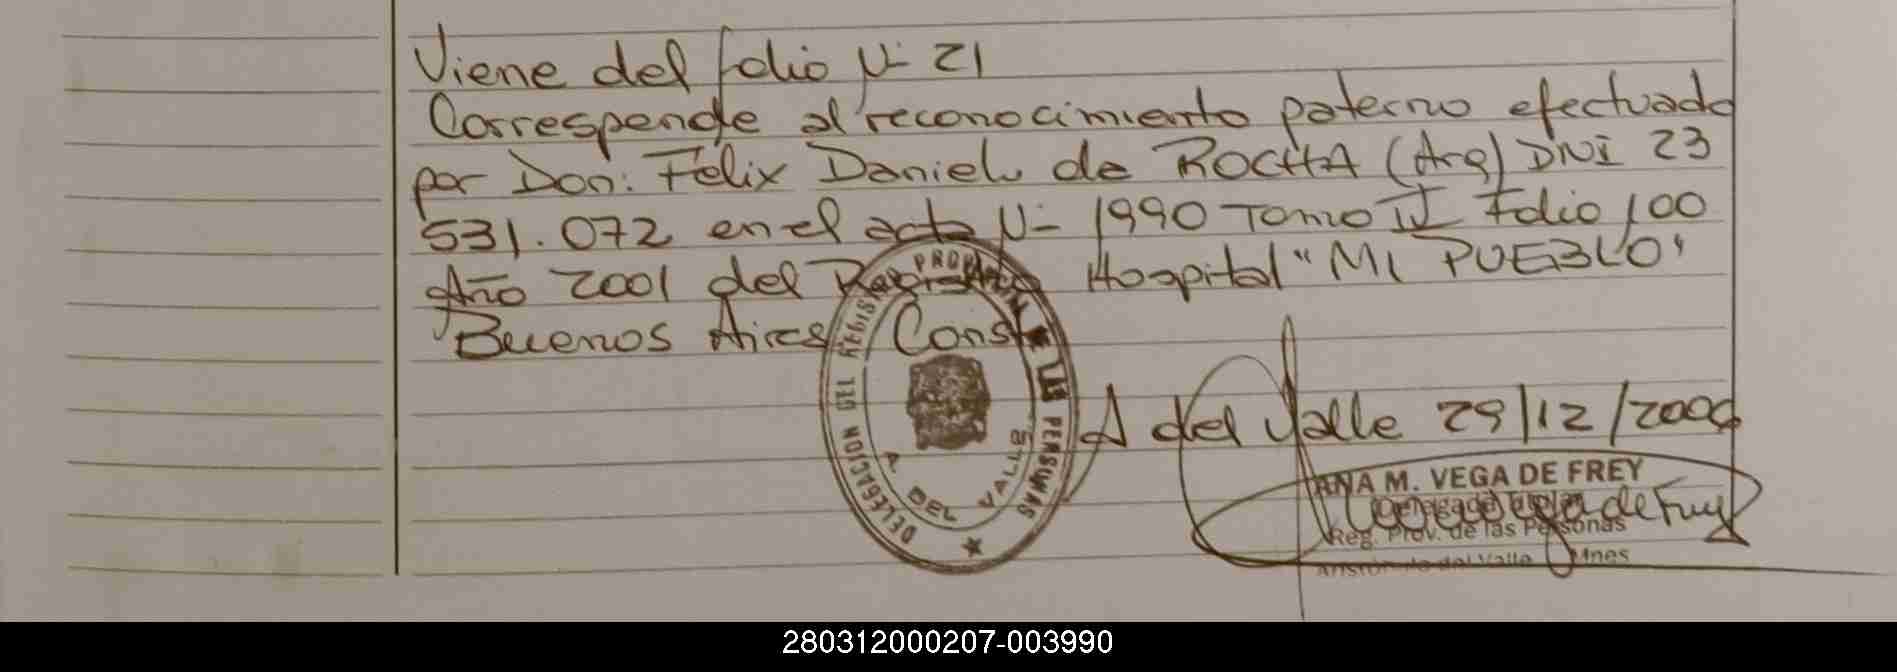 Viene del folio Nº 21
Correspende al reconocimiento paterno efectuado
por Don: Felix Daniel de ROCHA (Arg) DNI 23
531.072 en el acta Nº 1990 Tomo IV Folio 100
Año 2001 del Registro Hospital "MI PUEBLO"
Buenos Aires Conste
A del Valle 29/12/2006
DELEGACION DEL REGISTRO PROVINCIAL DE LAS PERSONAS
A DEL VALLE
ANA M. VEGA DE FREY
Delegada Titular
Reg. Prov. de las Personas
Aristóbulo del Valle Mnes
280312000207-003990